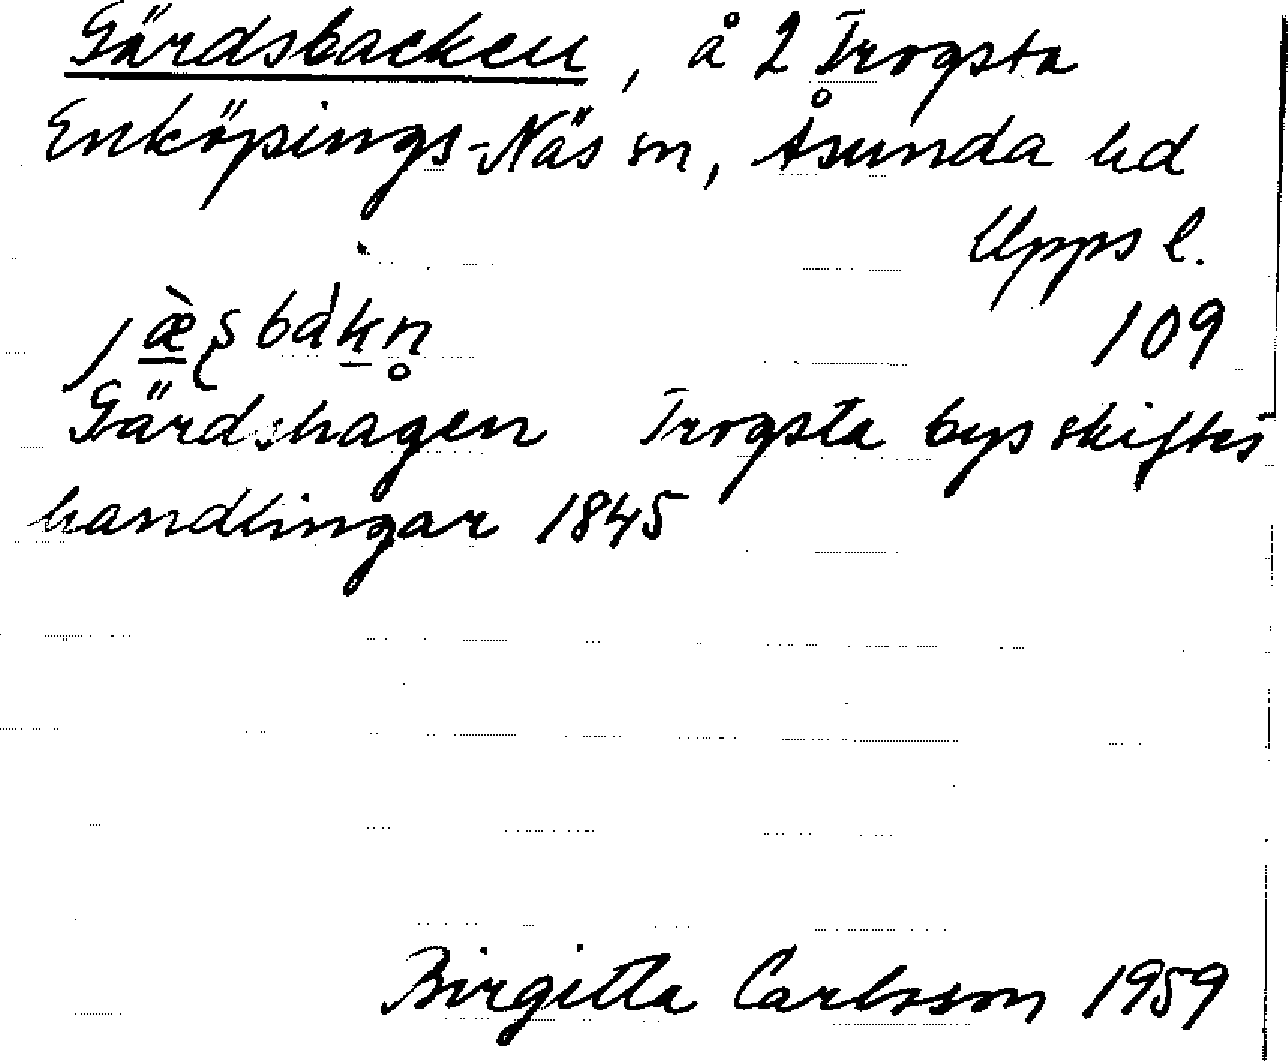 Gärdsbacken, å 2 Trogsta
Enköpings-Näs sn, Åsunda hd
Upps l.
109
Gärdshagen Trogsta bys skiftes
handlingar 1845
Birgitta Carlsson 1959